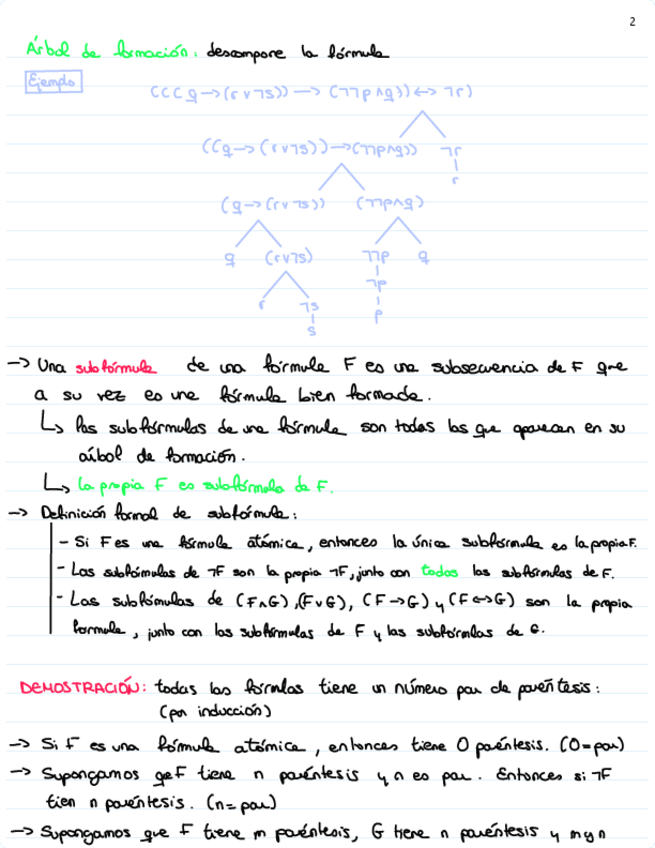 2
Árbol de formación: descompone la fórmula
Ejemplo
(((q→(r∨¬s))→(¬¬p∧q))↔¬r)
((q→(r∨¬s))→(¬¬p∧q)) ¬r
r
(q→(r∨¬s)) (¬¬p∧q)
q (r∨¬s) ¬¬p q
¬p
r ¬s p
s
→ Una subfórmula de una fórmula F es una subsecuencia de F que
a su vez es una fórmula bien formada.
↳ Las subfórmulas de una fórmula son todas las que aparecen en su
árbol de formación.
↳ La propia F es subfórmula de F.
→ Definición formal de subfórmula:
- Si F es una fórmula atómica, entonces la única subfórmula es la propia F.
- Las subfórmulas de ¬F son la propia ¬F, junto con todas las subfórmulas de F.
- Las subfórmulas de (F∧G), (F∨G), (F→G) y (F↔G) son la propia
formula, junto con las subfórmulas de F y las subfórmulas de G.
DEMOSTRACIÓN: todas las fórmulas tiene un número par de paréntesis:
(por inducción)
→ Si F es una fórmula atómica, entonces tiene 0 paréntesis. (0=par)
→ Supongamos qe F tiene n paréntesis y n es par. Entonces si ¬F
tien n paréntesis. (n=par)
→ Supongamos que F tiene m paréntesis, G tiene n paréntesis y m y n